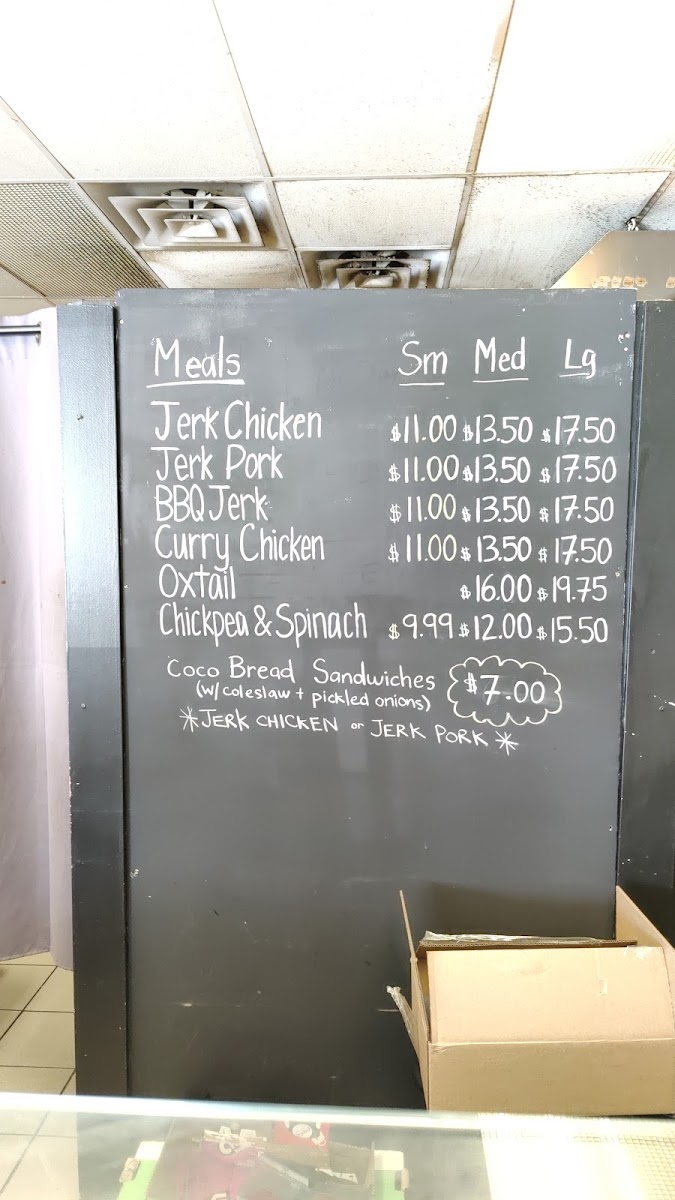 Meals Sm Med Lg
Jerk Chicken $11.00 $13.50 $17.50
Jerk Pork $11.00 $13.50 $17.50
BBQ Jerk $11.00 $13.50 $17.50
Curry Chicken $11.00 $13.50 $17.50
Oxtail $16.00 $19.75
Chickpea & Spinach $9.99 $12.00 $15.50
Coco Bread Sandwiches $7.00
(w/ coleslaw + pickled onions)
*JERK CHICKEN or JERK PORK*